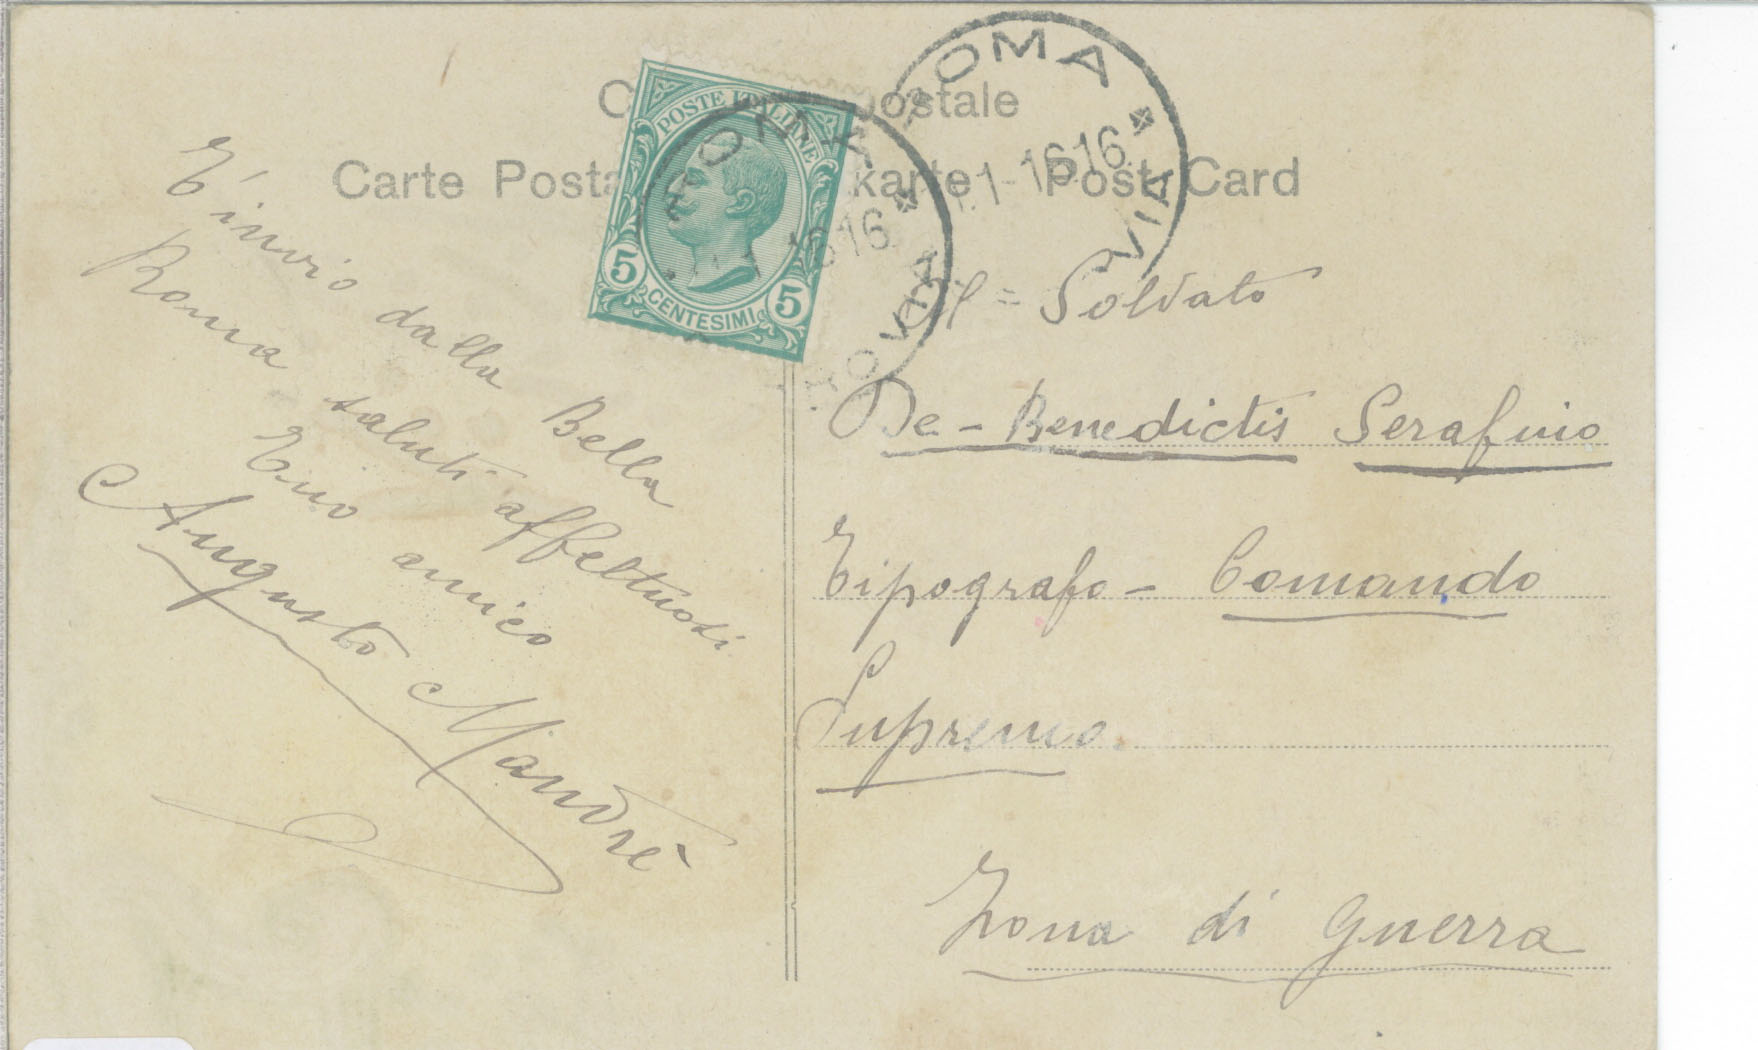 Postale
Carte Postale Postkarte Post Card
POSTE ITALIANE
5 CENTESIMI 5
ROMA
FERROVIA
1616
ROMA
VIA
1-1616
T'invio dalla Bella
Roma saluti affettuosi
Tuo amico
Augusto Mandrè
Al = Soldato
De-Benedictis Serafino
Tipografo - Comando
Supremo.
Zona di Guerra